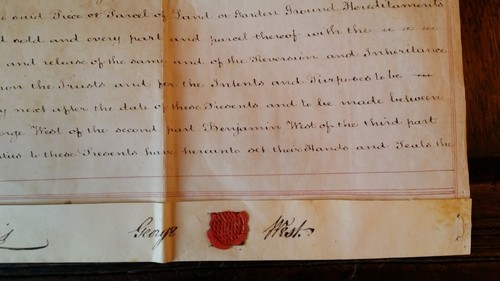 said Piece or Parcel of Land or Garden Ground Hereditaments
sold and every part and parcel thereof with the
and release of the same and of the Reversion and Inheritance
upon the Trusts and for the Intents and Purposes to be
next after the date of these Presents and to be made between
George West of the second part Benjamin West of the third part
to these Presents have hereunto set their Hands and Seals the
George West